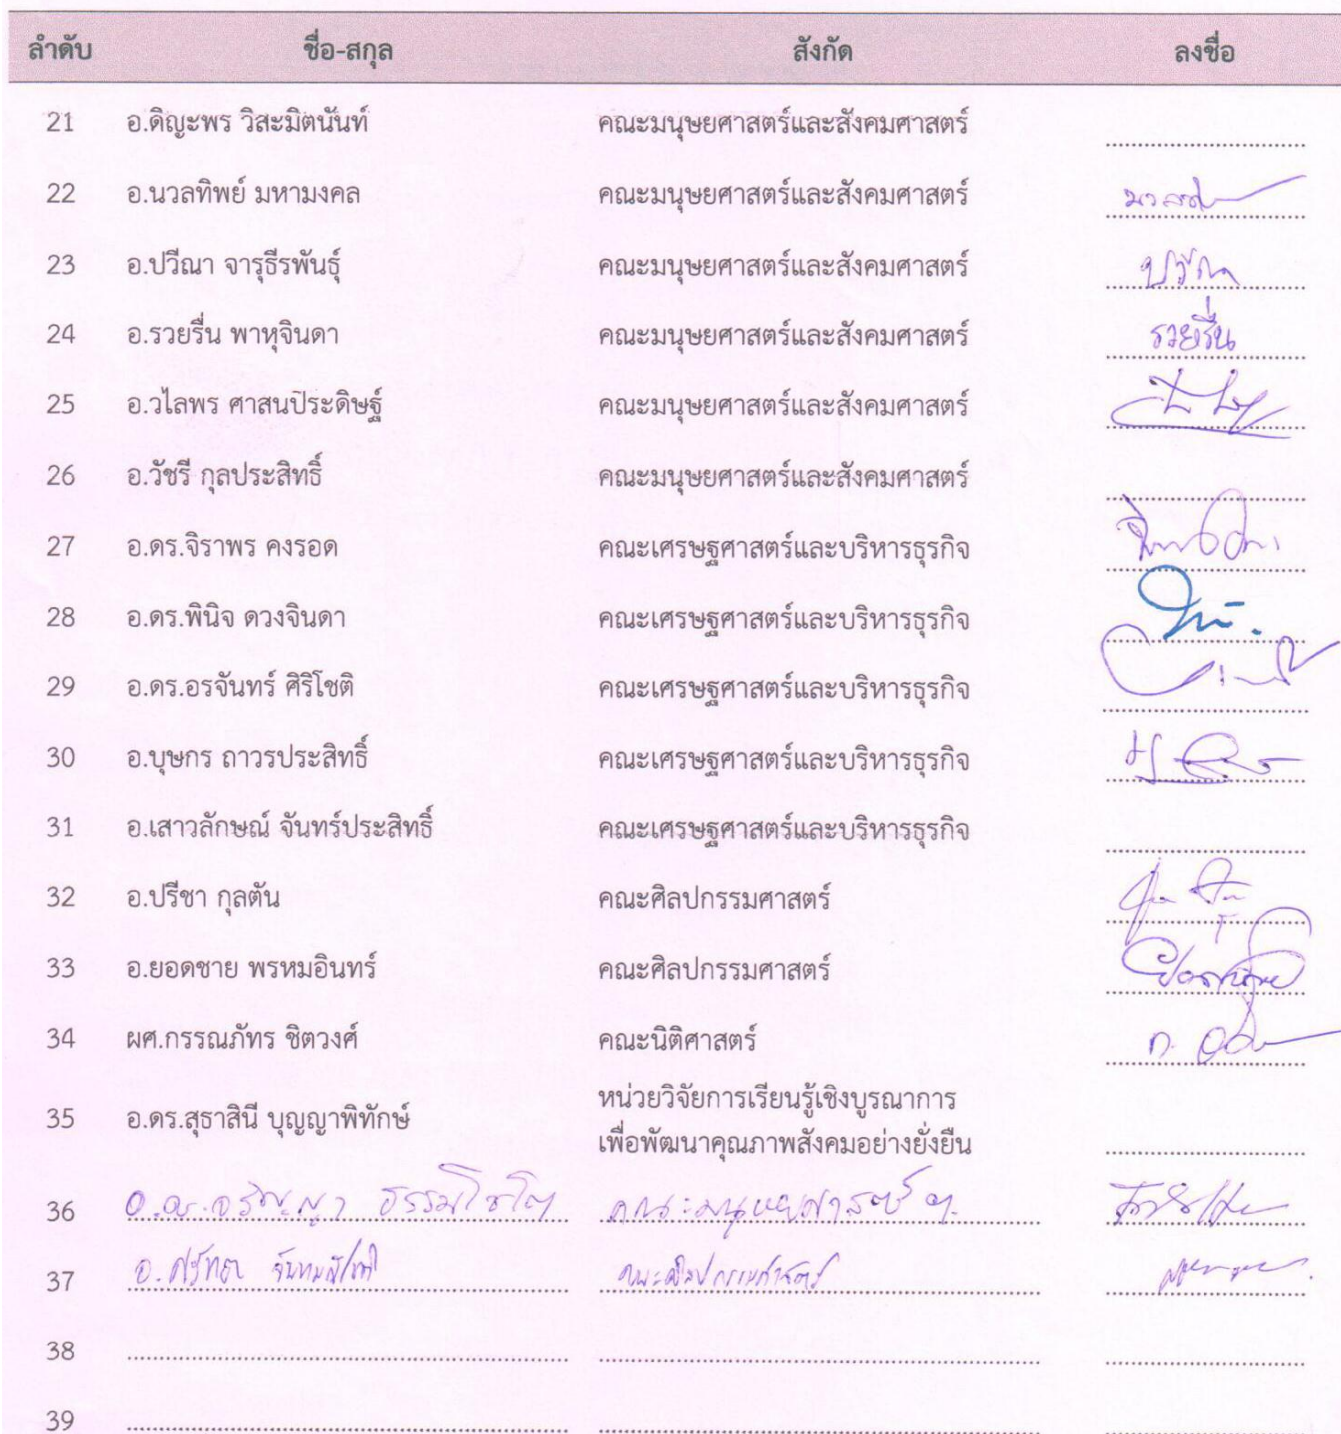 ลำดับ ชื่อ-สกุล สังกัด ลงชื่อ
21 อ.ดิญะพร วิสะมิตนันท์ คณะมนุษยศาสตร์และสังคมศาสตร์
22 อ.นวลทิพย์ มหามงคล คณะมนุษยศาสตร์และสังคมศาสตร์
23 อ.ปวีณา จารุธีรพันธุ์ คณะมนุษยศาสตร์และสังคมศาสตร์ ปวีณา
24 อ.รวยรื่น พาหุจินดา คณะมนุษยศาสตร์และสังคมศาสตร์ รวยรื่น
25 อ.วไลพร ศาสนประดิษฐ์ คณะมนุษยศาสตร์และสังคมศาสตร์
26 อ.วัชรี กุลประสิทธิ์ คณะมนุษยศาสตร์และสังคมศาสตร์
27 อ.ดร.จิราพร คงรอด คณะเศรษฐศาสตร์และบริหารธุรกิจ
28 อ.ดร.พินิจ ดวงจินดา คณะเศรษฐศาสตร์และบริหารธุรกิจ
29 อ.ดร.อรจันทร์ ศิริโชติ คณะเศรษฐศาสตร์และบริหารธุรกิจ
30 อ.บุษกร ถาวรประสิทธิ์ คณะเศรษฐศาสตร์และบริหารธุรกิจ
31 อ.เสาวลักษณ์ จันทร์ประสิทธิ์ คณะเศรษฐศาสตร์และบริหารธุรกิจ
32 อ.ปรีชา กุลตัน คณะศิลปกรรมศาสตร์
33 อ.ยอดชาย พรหมอินทร์ คณะศิลปกรรมศาสตร์ ยอดชาย
34 ผศ.กรรณภัทร ชิตวงศ์ คณะนิติศาสตร์
35 อ.ดร.สุธาสินี บุญญาพิทักษ์ หน่วยวิจัยการเรียนรู้เชิงบูรณาการ
เพื่อพัฒนาคุณภาพสังคมอย่างยั่งยืน
36 อ.ดร. ธรรมโชโต คณะมนุษยศาสตร์ ฯ
37 อ. คณะศิลปกรรมศาสตร์
38
39